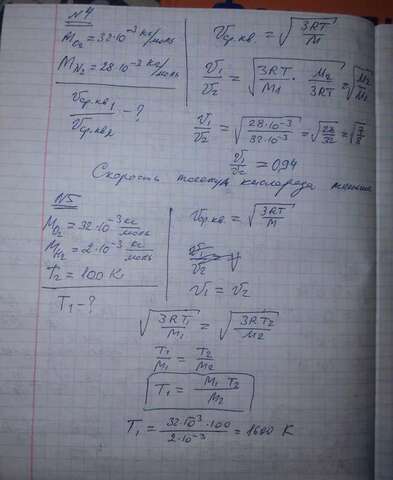 N4
M_{O₂} = 32·10⁻³ кг/моль
M_{N₂} = 28·10⁻³ кг/моль
Vср.кв₁/Vср.кв₂ - ?
Vср.кв = √(3RT/M)
V₁/V₂ = √(3RT/M₁ · M₂/3RT) = √(M₂/M₁)
V₁/V₂ = √(28·10⁻³/32·10⁻³) = √(28/32) = √(7/8)
V₁/V₂ = 0,94
Скорость молекул кислорода меньше
N5
M_{O₂} = 32·10⁻³ кг/моль
M_{H₂} = 2·10⁻³ кг/моль
T₂ = 100 K
T₁ - ?
Vср.кв = √(3RT/M)
V₁/V₂ = 1
V₁ = V₂
√(3RT₁/M₁) = √(3RT₂/M₂)
T₁/M₁ = T₂/M₂
T₁ = M₁ T₂/M₂
T₁ = 32·10⁻³·100/2·10⁻³ = 1600 K